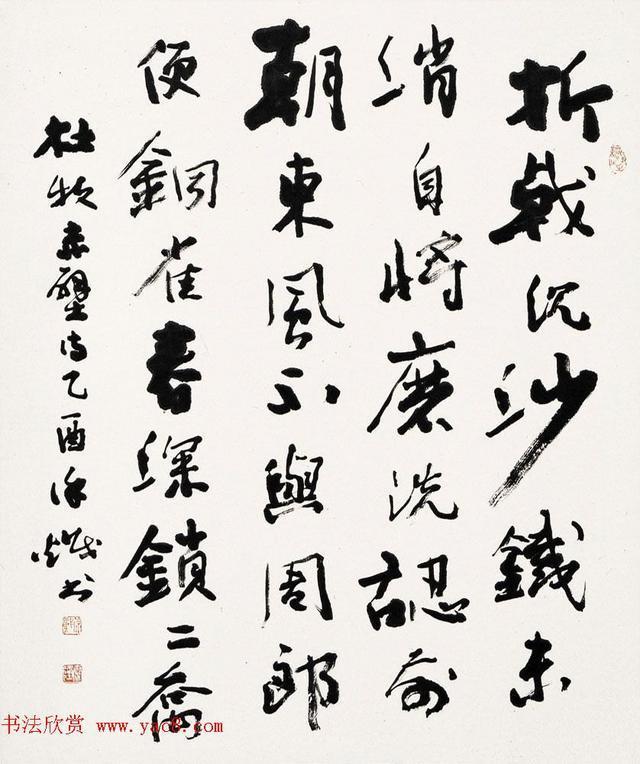 折戟沉沙鐵未
消自將磨洗認前
朝東風不與周郎
便銅雀春深鎖二喬
杜牧赤壁诗乙酉徐书
书法欣赏 www.yac8.com